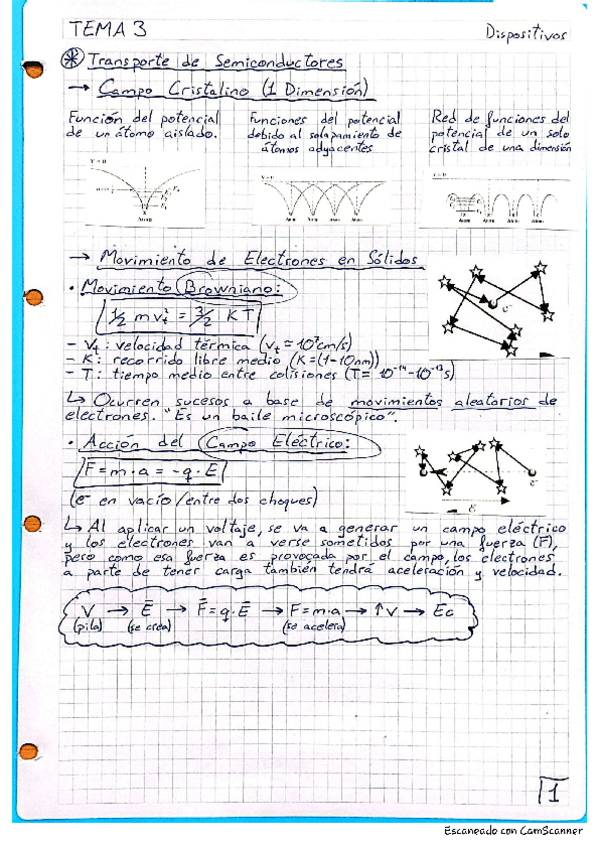 TEMA 3
Dispositivos
* Transporte de Semiconductores
→ Campo Cristalino (1 Dimensión)
Función del potencial
de un átomo aislado.
Funciones del potencial
debido al solapamiento de
átomos adyacentes
Red de funciones del
potencial de un solo
cristal de una dimensión
V = 0
Atom
V = 0
Atom Atom Atom Atom
V = 0
Atom Atom Atom Atom
→ Movimiento de Electrones en Sólidos
• Movimiento Browniano:
1/2 m vt² = 3/2 K T
- Vt: velocidad térmica (vt ≈ 10⁷cm/s)
- K: recorrido libre medio (K=(1-10nm))
- T: tiempo medio entre colisiones (T= 10⁻¹⁴-10⁻¹³s)
e⁻
↳ Ocurren sucesos a base de movimientos aleatorios de
electrones. "Es un baile microscópico".
• Acción del Campo Eléctrico:
F=m·a = -q·E
(e⁻ en vacío/entre dos choques)
e⁻ e⁻
ε
↳ Al aplicar un voltaje, se va a generar un campo eléctrico
y los electrones van a verse sometidos por una fuerza (F),
pero como esa fuerza es provocada por el campo, los electrones
a parte de tener carga también tendrá aceleración y velocidad.
V → E → F=q·E → F=m·a → ↑V → Ec
(pila) (se crea) (se acelera)
1
Escaneado con CamScanner